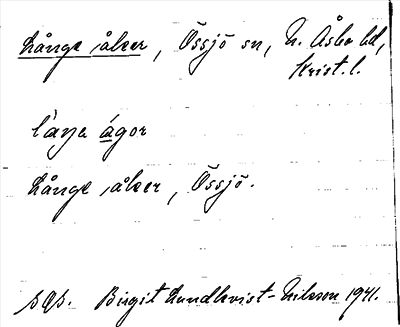 Långe åker, Össjö sn, N. Åsbo hd,
Krist. l.
Långe åker, Össjö.
Birgit Lundkvist-Nilsson 1941.